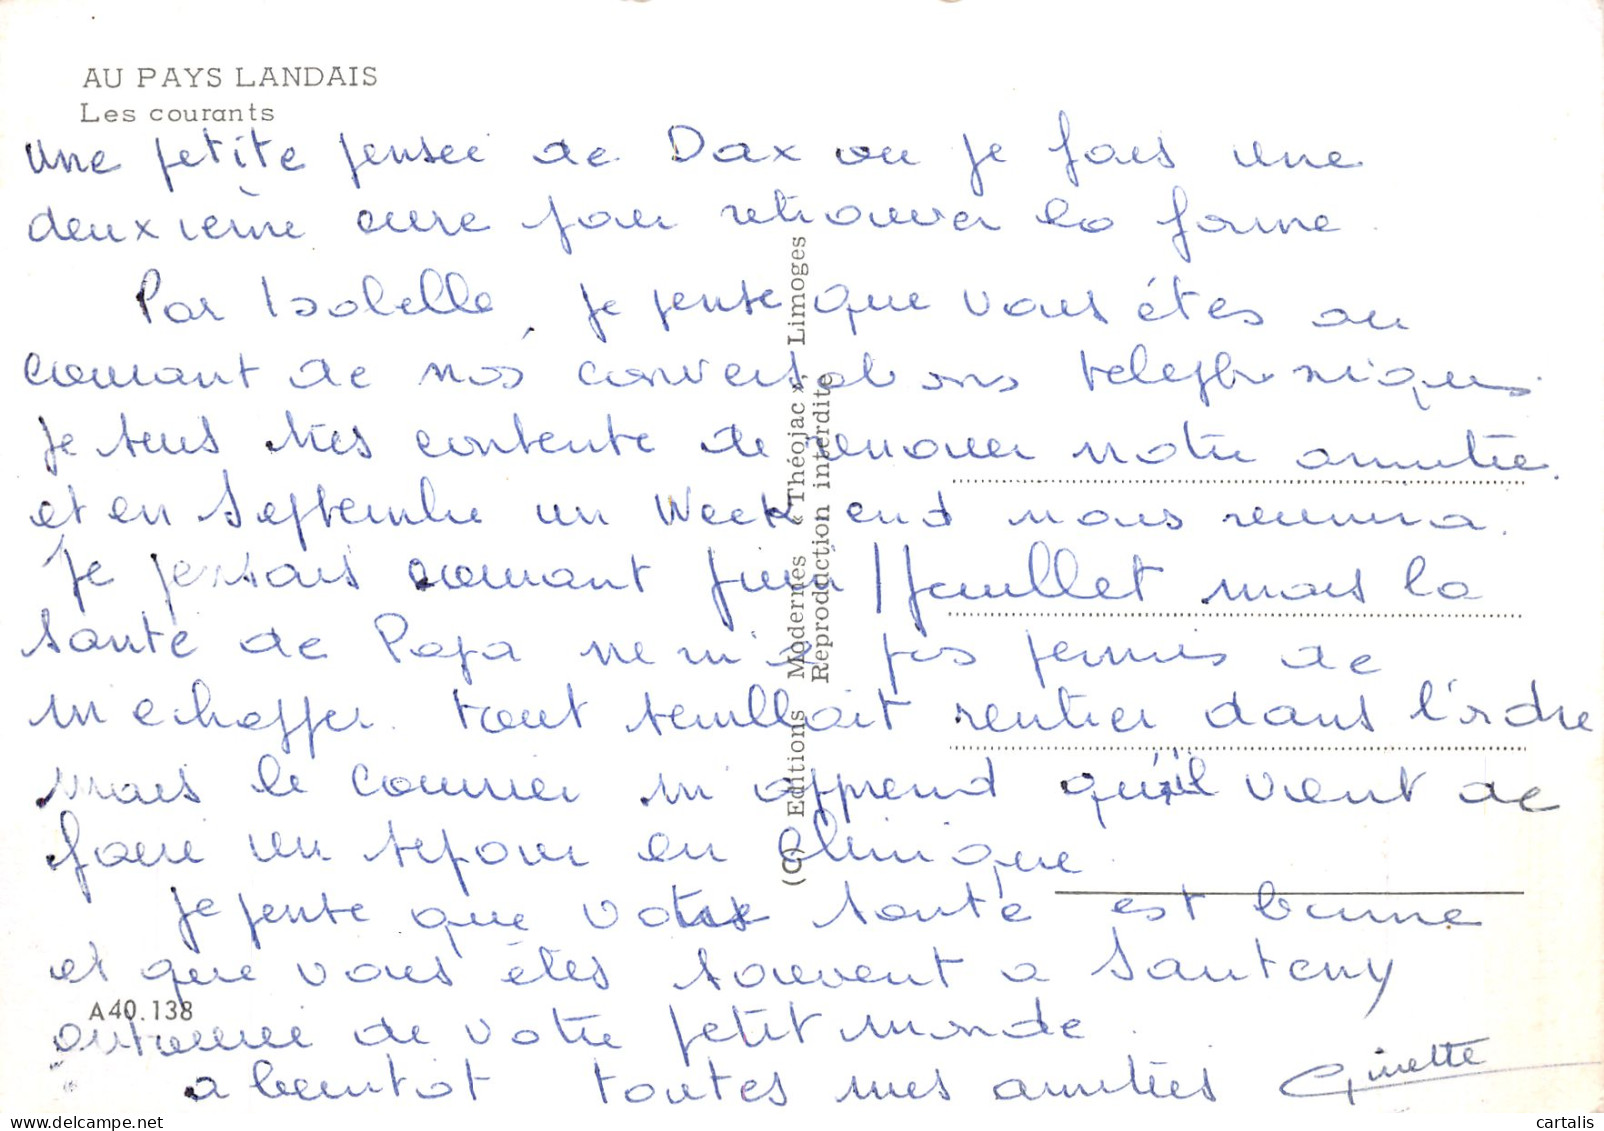 AU PAYS LANDAIS
Les courants
Une petite pensée de Dax ou je fais une
deuxième cure pour retrouver la forme.
Par Isabelle, je pense que vous étes au
courant de nos conversations telephoniques.
Je suis très contente de renouer notre amitié.
et en Septembre un Week end nous reunira.
Je pensais courant juin / juillet mais la
santé de Papa ne m'a pas permis de
m'echapper. tout semblait rentrer dans l'ordre
mais le courrier m'apprend qu'il vient de
faire un sejour en clinique.
Je pense que votre santé est bonne
et que vous étes souvent a Santeny
A40.138
entourée de votre petit monde.
a bientot toutes mes amitiés Ginette
(C) Editions Modernes « Théojac », Limoges
Reproduction interdite
cartalis
www.delcampe.net